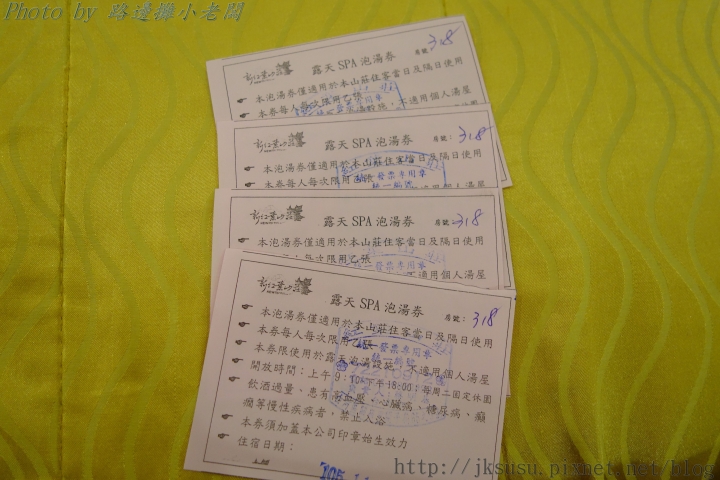 Photo by 路邊攤小老闆
露天 SPA 泡湯券 房號：318
本泡湯券僅適用於本山莊住客當日及隔日使用
本券每人每次限用乙張
不適用個人湯屋
露天 SPA 泡湯券 房號：318
本泡湯券僅適用於本山莊住客當日及隔日使用
本券每人每次限用乙張
露天 SPA 泡湯券 房號：318
本泡湯券僅適用於本山莊住客當日及隔日使用
每次限用乙張
不適用個人湯屋
露天 SPA 泡湯券 房號：318
本泡湯券僅適用於本山莊住客當日及隔日使用
本券每人每次限用乙張
本券限使用於露天泡湯設施，不適用個人湯屋
開放時間：上午 9：10-下午 18：00；每周二固定休園
飲酒過量、患有高血壓、心臟病、糖尿病、癲
癇等慢性疾病者，禁止入浴
本券須加蓋本公司印章始生效力
住宿日期：
http://jksusu.pixnet.net/blog